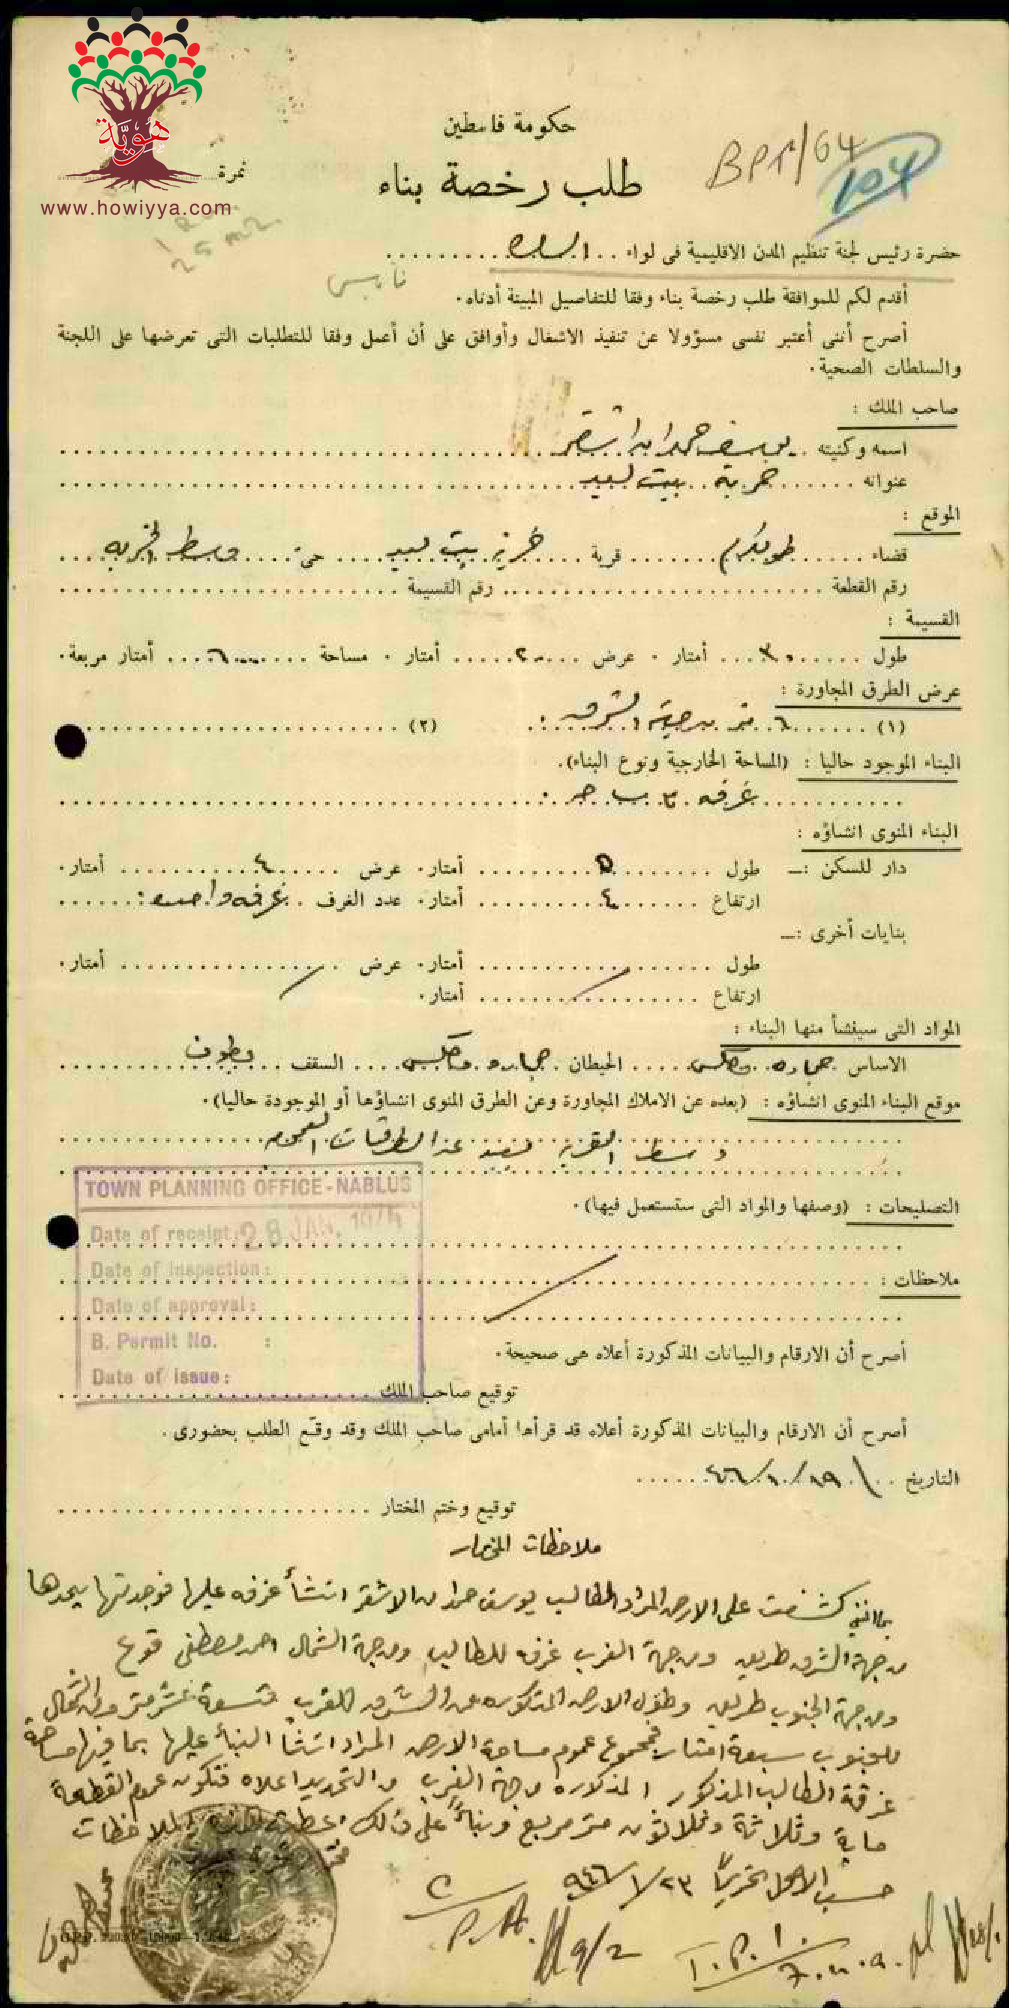 هوية
www.howiyya.com
حكومة فلسطين
طلب رخصة بناء
BP1/64
104
نمرة
25 m2
حضرة رئيس لجنة تنظيم المدن الاقليمية فى لواء السامرة
نابلس
أقدم لكم للموافقة طلب رخصة بناء وفقا للتفاصيل المبينة أدناه.
أصرح أننى أعتبر نفسى مسؤولا عن تنفيذ الاشغال وأوافق على أن أعمل وفقا للمتطلبات التى تعرضها على اللجنة
والسلطات الصحية.
صاحب الملك :
اسمه وكنيته يوسف حمدان اشقر
عنوانه خربة بيت ليد
الموقع :
قضاء طولكرم قرية خربة بيت ليد حى وسط الخربه
رقم القطعة رقم القسيمة
القسيمة :
طول ٣٠ أمتار . عرض ٢٠ أمتار . مساحة ٦٠٠ أمتار مربعة.
عرض الطرق المجاورة :
(١) ٦ متر من جهة الشرق (٢)
البناء الموجود حاليا : (المساحة الخارجية ونوع البناء).
غرفه
البناء المنوى انشاؤه :
دار للسكن :ــ طول ٥ أمتار. عرض ٤ أمتار.
ارتفاع ٤ أمتار. عدد الغرف غرفه واحده
بنايات أخرى :ــ
طول أمتار. عرض أمتار.
ارتفاع أمتار.
المواد التى سينشأ منها البناء :
الاساس حجاره وكلس الحيطان حجاره وكلس السقف بطون
موقع البناء المنوى انشاؤه : (بعده عن الاملاك المجاورة وعن الطرق المنوى انشاؤها أو الموجودة حاليا).
وسط القرية بعيد عن الطرقات العموم
TOWN PLANNING OFFICE-NABLUS
التصليحات : (وصفها والمواد التى ستستعمل فيها).
Date of receipt: 28 JAN.
Date of inspection:
ملاحظات :
Date of approval:
B. Permit No. :
أصرح أن الارقام والبيانات المذكورة أعلاه هى صحيحة.
Date of issue:
توقيع صاحب الملك
أصرح أن الارقام والبيانات المذكورة أعلاه قد قرأها أمامى صاحب الملك وقد وقّع الطلب بحضورى .
التاريخ
توقيع وختم المختار
ملاحظات المختار
بما اننى كشفت على الارض المراد الطالب يوسف حمدان الاشقر انشأ غرفه عليها فوجدتها يحدها
من جهة الشرق طريق ومن جهة الغرب غرفه للطالب ومن جهة الشمال احمد مصطفى
ومن جهة الجنوب طريق وطول الارض المذكوره من الشرق للغرب تسعة عشر متر ومن الشمال
للجنوب سبعة امتار فمجموع عموم مساحة الارض المراد انشأ البنأ عليها بما فيها مساحة
غرفة الطالب المذكور المذكوره من جهة الغرب من التحديد اعلاه فتكون عموم القطعة
ماية وثلاثة وثلاثون متر مربع وبنأً على ذلك اعطيت هذه الملاحظات
حسب الاصول تحريرًا ٢٣/١/٩٤٦